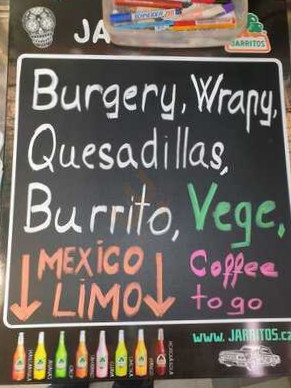 JA
JARRITOS
Burgery, Wrapy,
Quesadillas,
Burrito, Vege,
MEXICO
LIMO
Coffee
to go
www.JARRITOS.cz